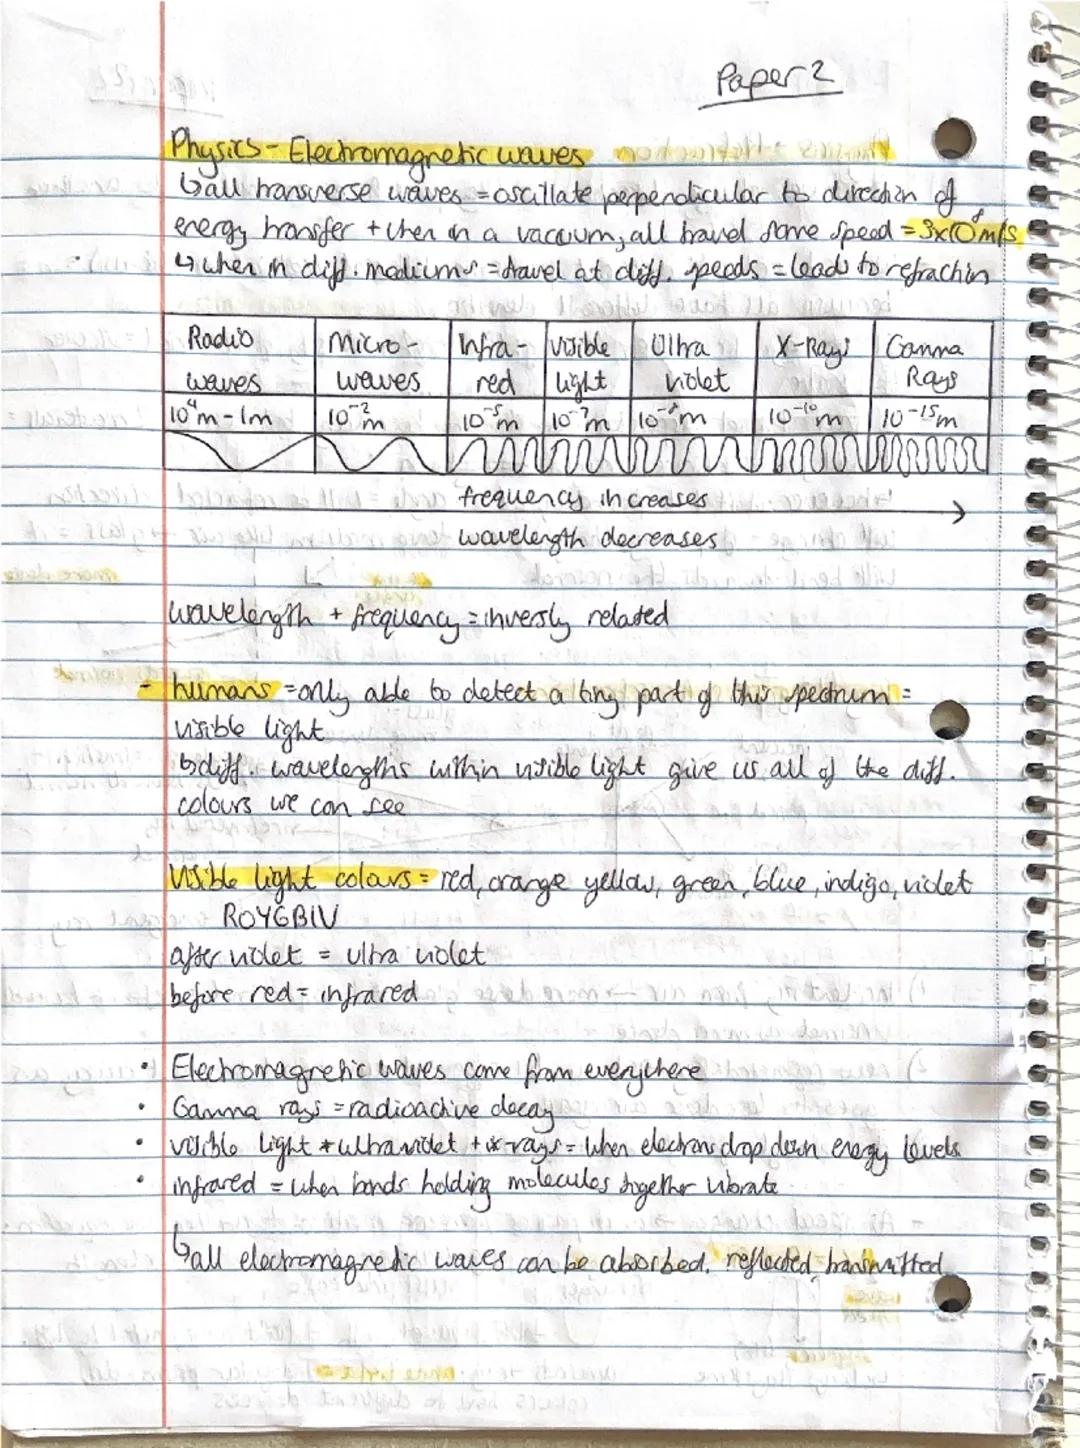 Paper 2
Physics - Electromagnetic waves
↳ all transverse waves = oscillate perpendicular to direction of
energy transfer + when in a vacuum, all travel same speed = 3x10⁸m/s
↳ when in diff. mediums = travel at diff. speeds = leads to refraction
Radio waves | Micro-waves | Infra-red | visible light | Ultra violet | X-Rays | Gamma Rays
10⁴m-1m | 10⁻²m | 10⁻⁵m | 10⁻⁷m | 10⁻⁸m | 10⁻¹⁰m | 10⁻¹⁵m
frequency increases
wavelength decreases
wavelength + frequency = inversly related
- humans = only able to detect a tiny part of this spectrum =
visible light
↳ diff. wavelengths within visible light give us all of the diff.
colours we can see
Visible light colours = red, orange yellow, green, blue, indigo, violet
ROYGBIV
after violet = ultra violet
before red = infrared
• Electromagnetic waves come from everywhere
• Gamma rays = radioactive decay
• visible light + ultraviolet + x-rays = when electrons drop down energy levels
• infrared = when bonds holding molecules together vibrate
↳ all electromagnetic waves can be absorbed, reflected, transmitted